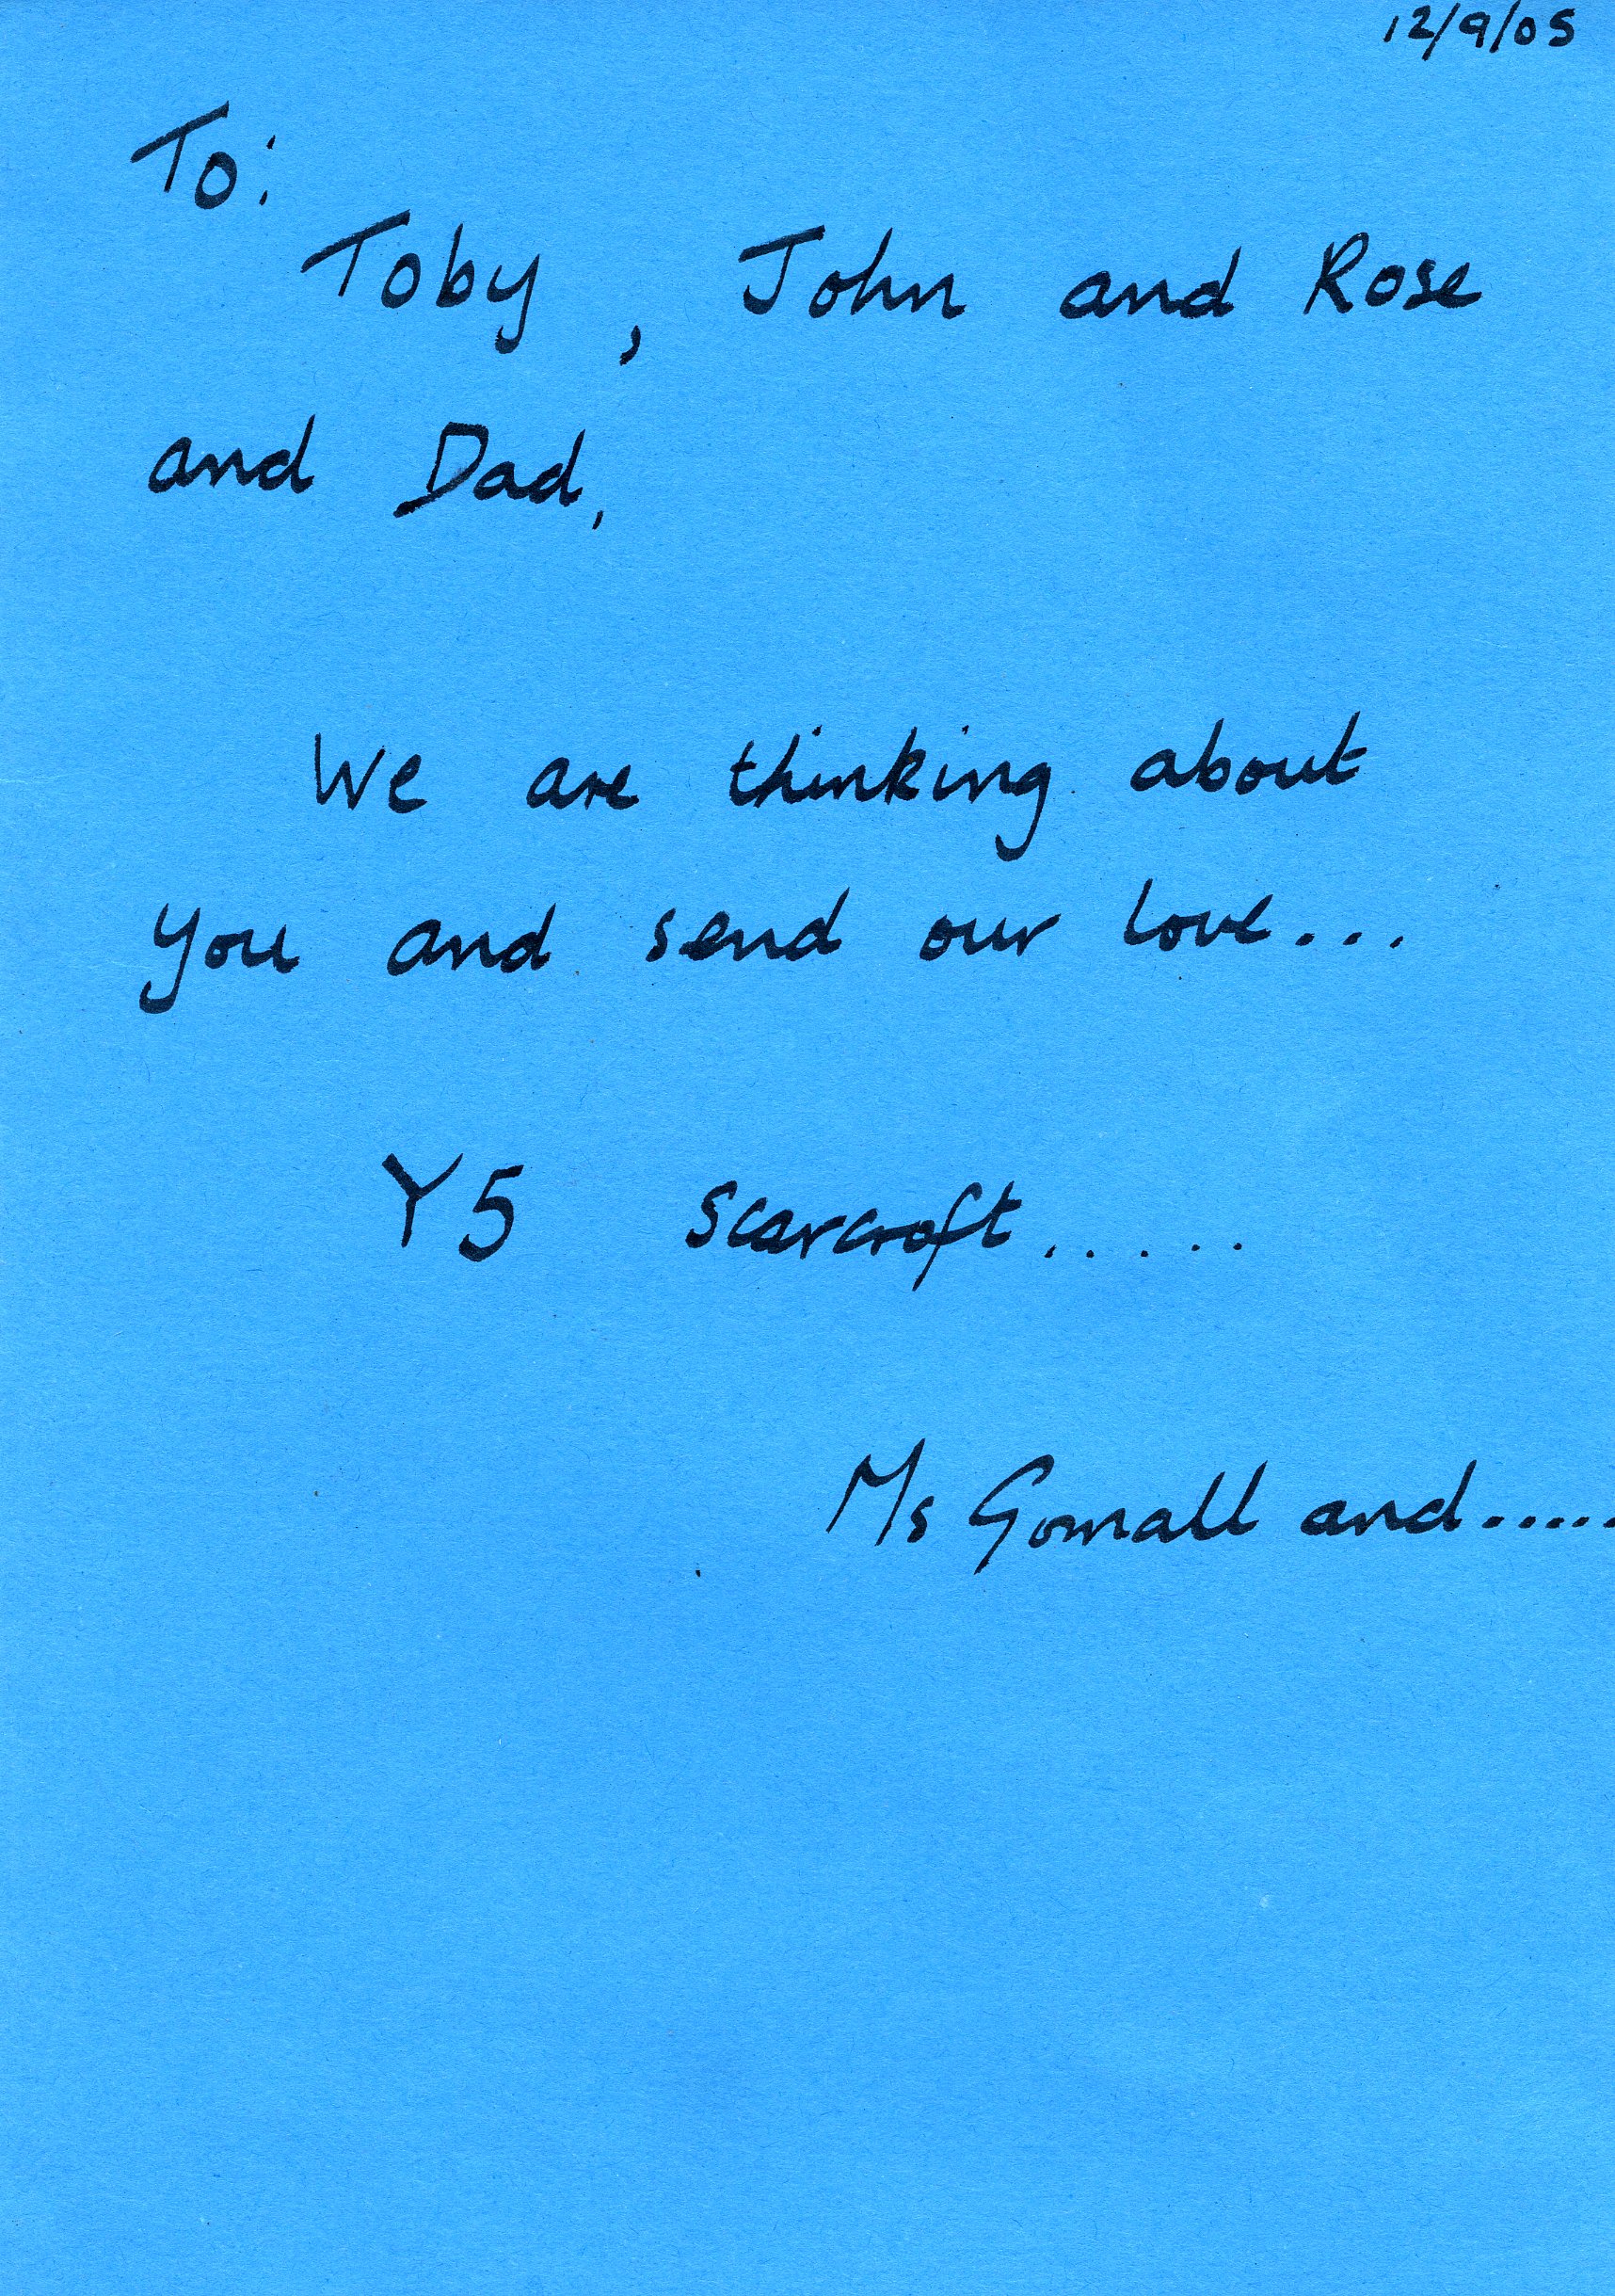 12/9/05
To:
Toby, John and Rose
and Dad,
We are thinking about
you and send our love...
Y5 Scarcroft......
Ms Gornall and.....